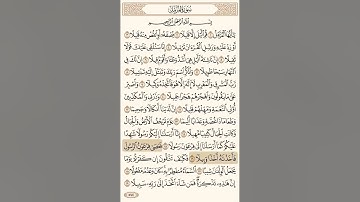 سُورَةُ المُزَّمِّلِ
بِسْمِ ٱللَّهِ ٱلرَّحْمَٰنِ ٱلرَّحِيمِ
يَٰٓأَيُّهَا ٱلْمُزَّمِّلُ ١ قُمِ ٱلَّيْلَ إِلَّا قَلِيلًا ٢ نِّصْفَهُۥٓ أَوِ ٱنقُصْ مِنْهُ قَلِيلًا ٣
أَوْ زِدْ عَلَيْهِ وَرَتِّلِ ٱلْقُرْءَانَ تَرْتِيلًا ٤ إِنَّا سَنُلْقِى عَلَيْكَ قَوْلًا
ثَقِيلًا ٥ إِنَّ نَاشِئَةَ ٱلَّيْلِ هِىَ أَشَدُّ وَطْـًٔا وَأَقْوَمُ قِيلًا ٦ إِنَّ لَكَ فِى
ٱلنَّهَارِ سَبْحًا طَوِيلًا ٧ وَٱذْكُرِ ٱسْمَ رَبِّكَ وَتَبَتَّلْ إِلَيْهِ تَبْتِيلًا ٨
رَّبُّ ٱلْمَشْرِقِ وَٱلْمَغْرِبِ لَآ إِلَٰهَ إِلَّا هُوَ فَٱتَّخِذْهُ وَكِيلًا ٩ وَٱصْبِرْ
عَلَىٰ مَا يَقُولُونَ وَٱهْجُرْهُمْ هَجْرًا جَمِيلًا ١٠ وَذَرْنِى وَٱلْمُكَذِّبِينَ
أُو۟لِى ٱلنَّعْمَةِ وَمَهِّلْهُمْ قَلِيلًا ١١ إِنَّ لَدَيْنَآ أَنكَالًا وَجَحِيمًا ١٢
وَطَعَامًا ذَا غُصَّةٍ وَعَذَابًا أَلِيمًا ١٣ يَوْمَ تَرْجُفُ ٱلْأَرْضُ وَٱلْجِبَالُ
وَكَانَتِ ٱلْجِبَالُ كَثِيبًا مَّهِيلًا ١٤ إِنَّآ أَرْسَلْنَآ إِلَيْكُمْ رَسُولًا شَٰهِدًا
عَلَيْكُمْ كَمَآ أَرْسَلْنَآ إِلَىٰ فِرْعَوْنَ رَسُولًا ١٥ فَعَصَىٰ فِرْعَوْنُ ٱلرَّسُولَ
فَأَخَذْنَٰهُ أَخْذًا وَبِيلًا ١٦ فَكَيْفَ تَتَّقُونَ إِن كَفَرْتُمْ يَوْمًا
يَجْعَلُ ٱلْوِلْدَٰنَ شِيبًا ١٧ ٱلسَّمَآءُ مُنفَطِرٌۢ بِهِۦ كَانَ وَعْدُهُۥ مَفْعُولًا ١٨
إِنَّ هَٰذِهِۦ تَذْكِرَةٌ فَمَن شَآءَ ٱتَّخَذَ إِلَىٰ رَبِّهِۦ سَبِيلًا ١٩
٥٧٤